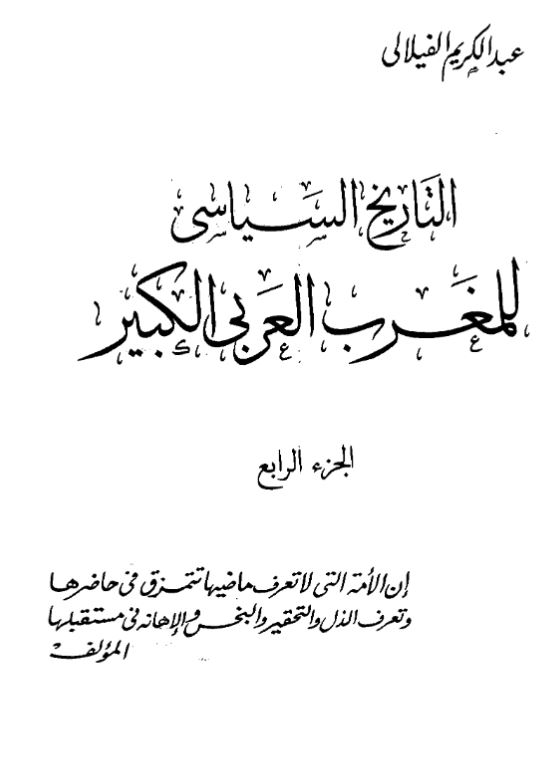 عبد الكريم الفيلالى
التاريخ السياسى
للمغرب العربى الكبير
الجزء الرابع
إن الأمة التى لا تعرف ماضيها تتمزق فى حاضرها
وتعرف الذل والتحقير والبخس والإهانة فى مستقبلها
المؤلف